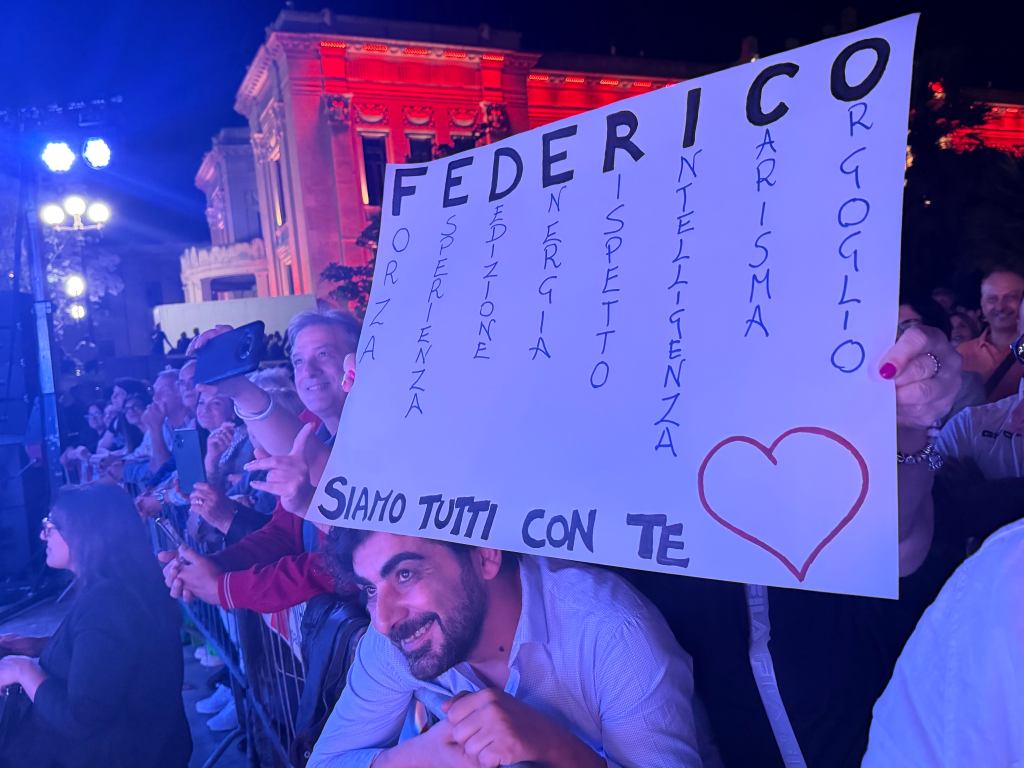 FEDERICO
ORZA
SPERIENZA
EDIZIONE
NERGIA
ISPETTO
NTELLIGENZA
ARISMA
RGOGLIO
SIAMO TUTTI CON TE